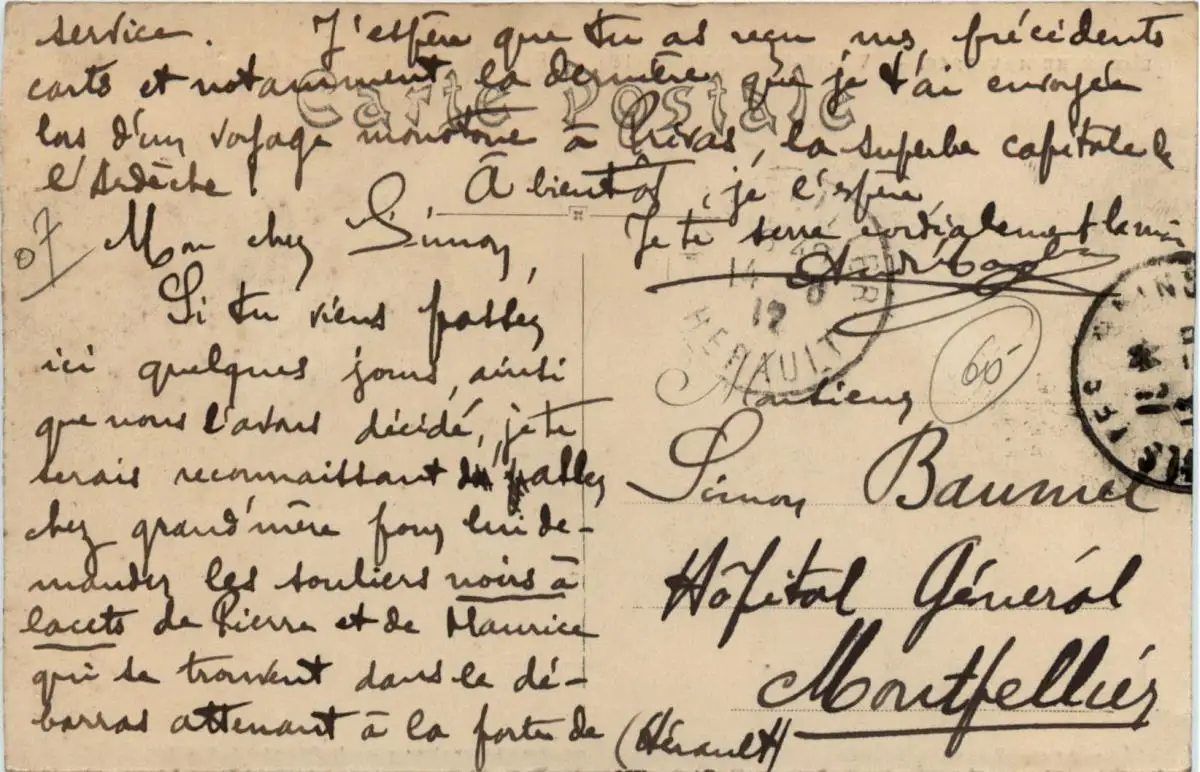 service. J'espère que tu as reçu mes précédents
carts et notamment la dernière que je t'ai envoyée
lors d'un voyage monotone à Privas, la superbe capitale de
l'Ardèche! À bientôt, je l'espère,
Je te serre cordialement la main
Carte Postale
07
Mon cher Simon,
Si tu viens passer
ici quelques jours, ainsi
que nous l'avons décidé, je te
serais reconnaissant de passer
chez grand'mère pour lui de-
mander les souliers noirs à
lacets de Pierre et de Maurice
qui se trouvent dans le dé-
barras attenant à la porte de
HERAULT
60
Monsieur
Simon Baumel
Hôpital Général
Montpellier
(Hérault)